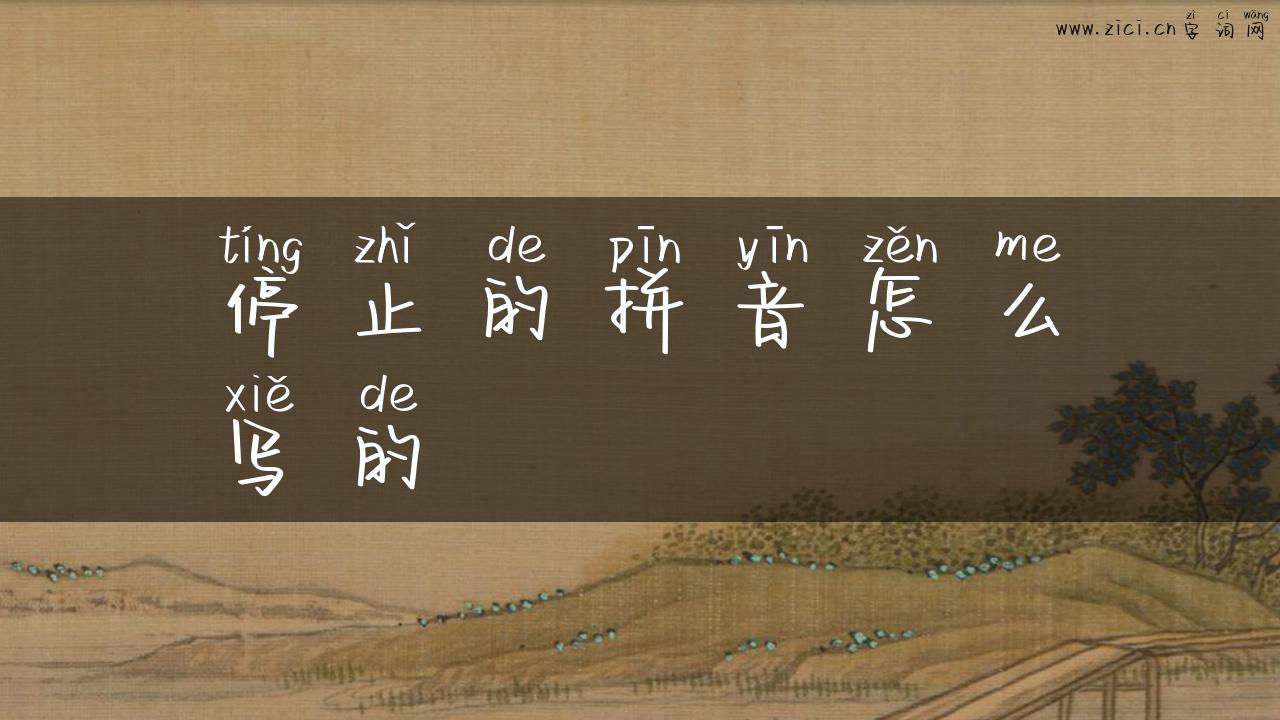 zì cí wǎng
www.zici.cn 字词网
tíng zhǐ de pīn yīn zěn me
停止的拼音怎么
xiě de
写的